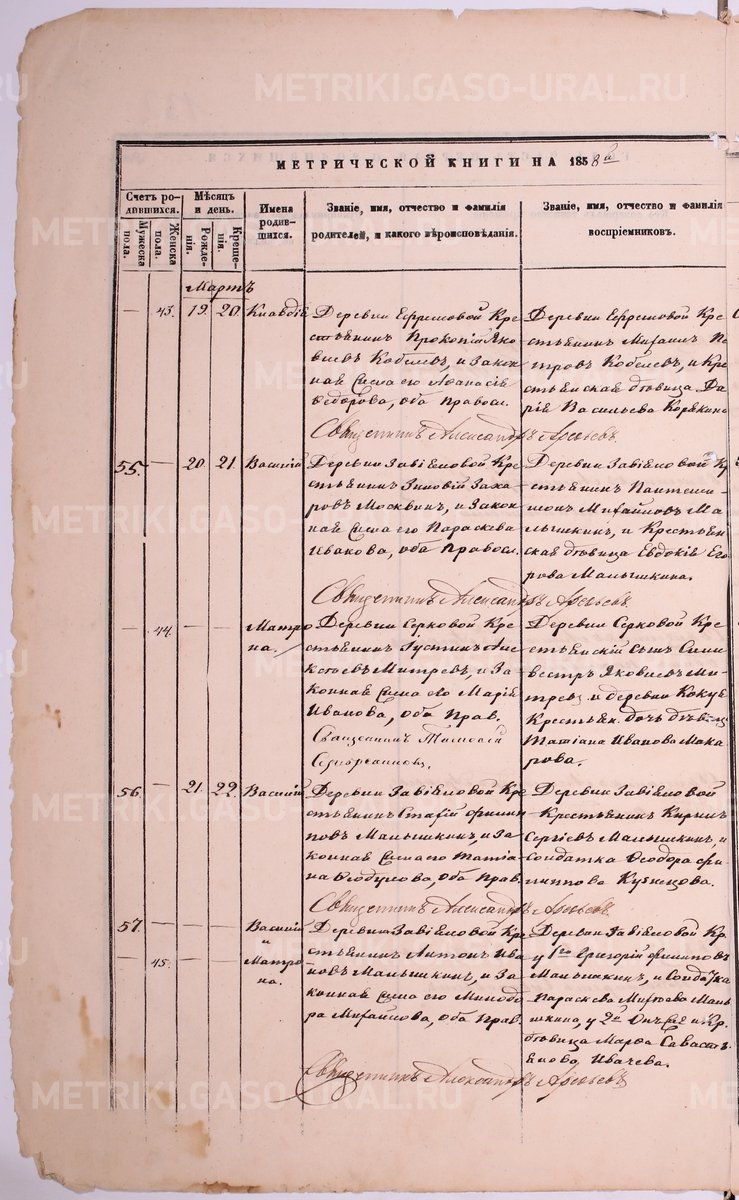 МЕТРИЧЕСКОЙ КНИГИ НА 1858й
Счетъ родившихся.
Мужеска пола.
Женска пола.
Мѣсяцъ и день.
Рожденія.
Крещенія.
Имена родившихся.
Званіе, имя, отчество и фамилія
родителей, и какого вѣроисповѣданія.
Званіе, имя, отчество и фамилія
воспріемниковъ.
Мартъ
— 43. 19. 20. Клавдія
Деревни Ефремовой Кре
стьянинъ Прокопій Яко
влевъ Кобелевъ, и закон
ная жена его Афанасія
Федорова, оба Правосл.
Деревни Ефремовой Кре
стьянинъ Михаилъ Пе
тровъ Кобелевъ, и Кре
стьянская дѣвица Да
рія Васильева Корякина
Священникъ Александръ
55. — 20. 21. Василій
Деревни Завьяловой Кре
стьянинъ Зиновій Заха
ровъ Москвинъ, и закон
ная жена его Параскева
Иванова, оба Правосл.
Деревни Завьяловой Кр
стьянинъ Пантелеи
монъ Михайловъ Ма
лышкинъ, и Крестьян
ская дѣвица Евдокія Его
рова Малышкина.
Священникъ Александръ
— 44. — — Матро
на.
Деревни Серковой Кре
стьянинъ Густинъ Але
ксѣевъ Митревъ, и за
конная жена его Марія
Иванова, оба Прав.
Священникъ Тимофей
Деревни Серковой Кре
стьянскій сынъ Сили
вестръ Яковлевъ Ми
тревъ и деревни Кокуя
Крестьян. дочь дѣвица
Татіана Иванова Мака
рова.
56. — 21. 22. Василій
Деревни Завьяловой Кре
стьянинъ Филип
повъ Малышкинъ, и за
конная жена его Татіа
на Ѳеодулова, оба Прав.
Деревни Завьяловой
Крестьянинъ Кирилъ
Сергѣевъ Малышкинъ, и
Солдатка Ѳеодора Фи
липпова Кузнецова.
Священникъ Александръ
57. — — — Василій
и
— 45. — — Матро
на.
Деревни Завьяловой Кре
стьянинъ Антонъ Ива
новъ Малышкинъ, и за
конная жена его Минодо
ра Михайлова, оба Прав.
Деревни Завьяловой Кр.
у 1го Григорій Филиповъ
Малышкинъ, и Солдатка
Параскева Малы
шкина, у 2й и Кр.
дѣвица Марѳа Савасть
янова Ивачева.
Священникъ Александръ
METRIKI.GASO-URAL.RU